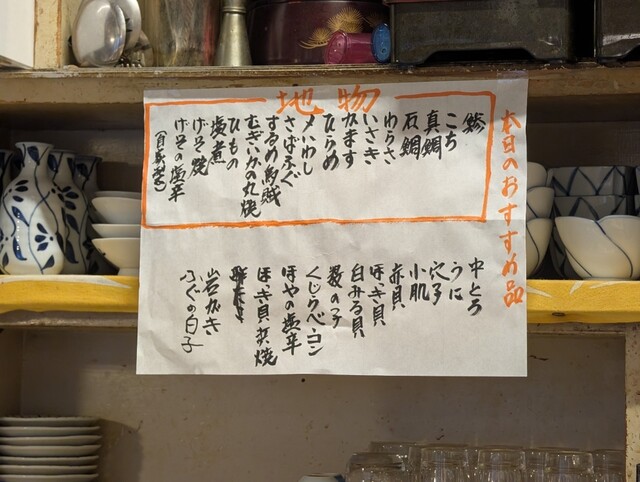 本日のおすすめ品
地物
鯵
こち
真鯛
石鯛
わらさ
いさき
かます
ひらめ
〆いわし
さばふぐ
するめ烏賊
むぎいかの丸焼
ひもの
塩煮
げそ焼
げその塩辛
(自家製)
中とろ
うに
穴子
小肌
赤貝
ほっき貝
白みる貝
数の子
くじらベーコン
ほやの塩辛
ほっき貝炙焼
岩がき
ふぐの白子